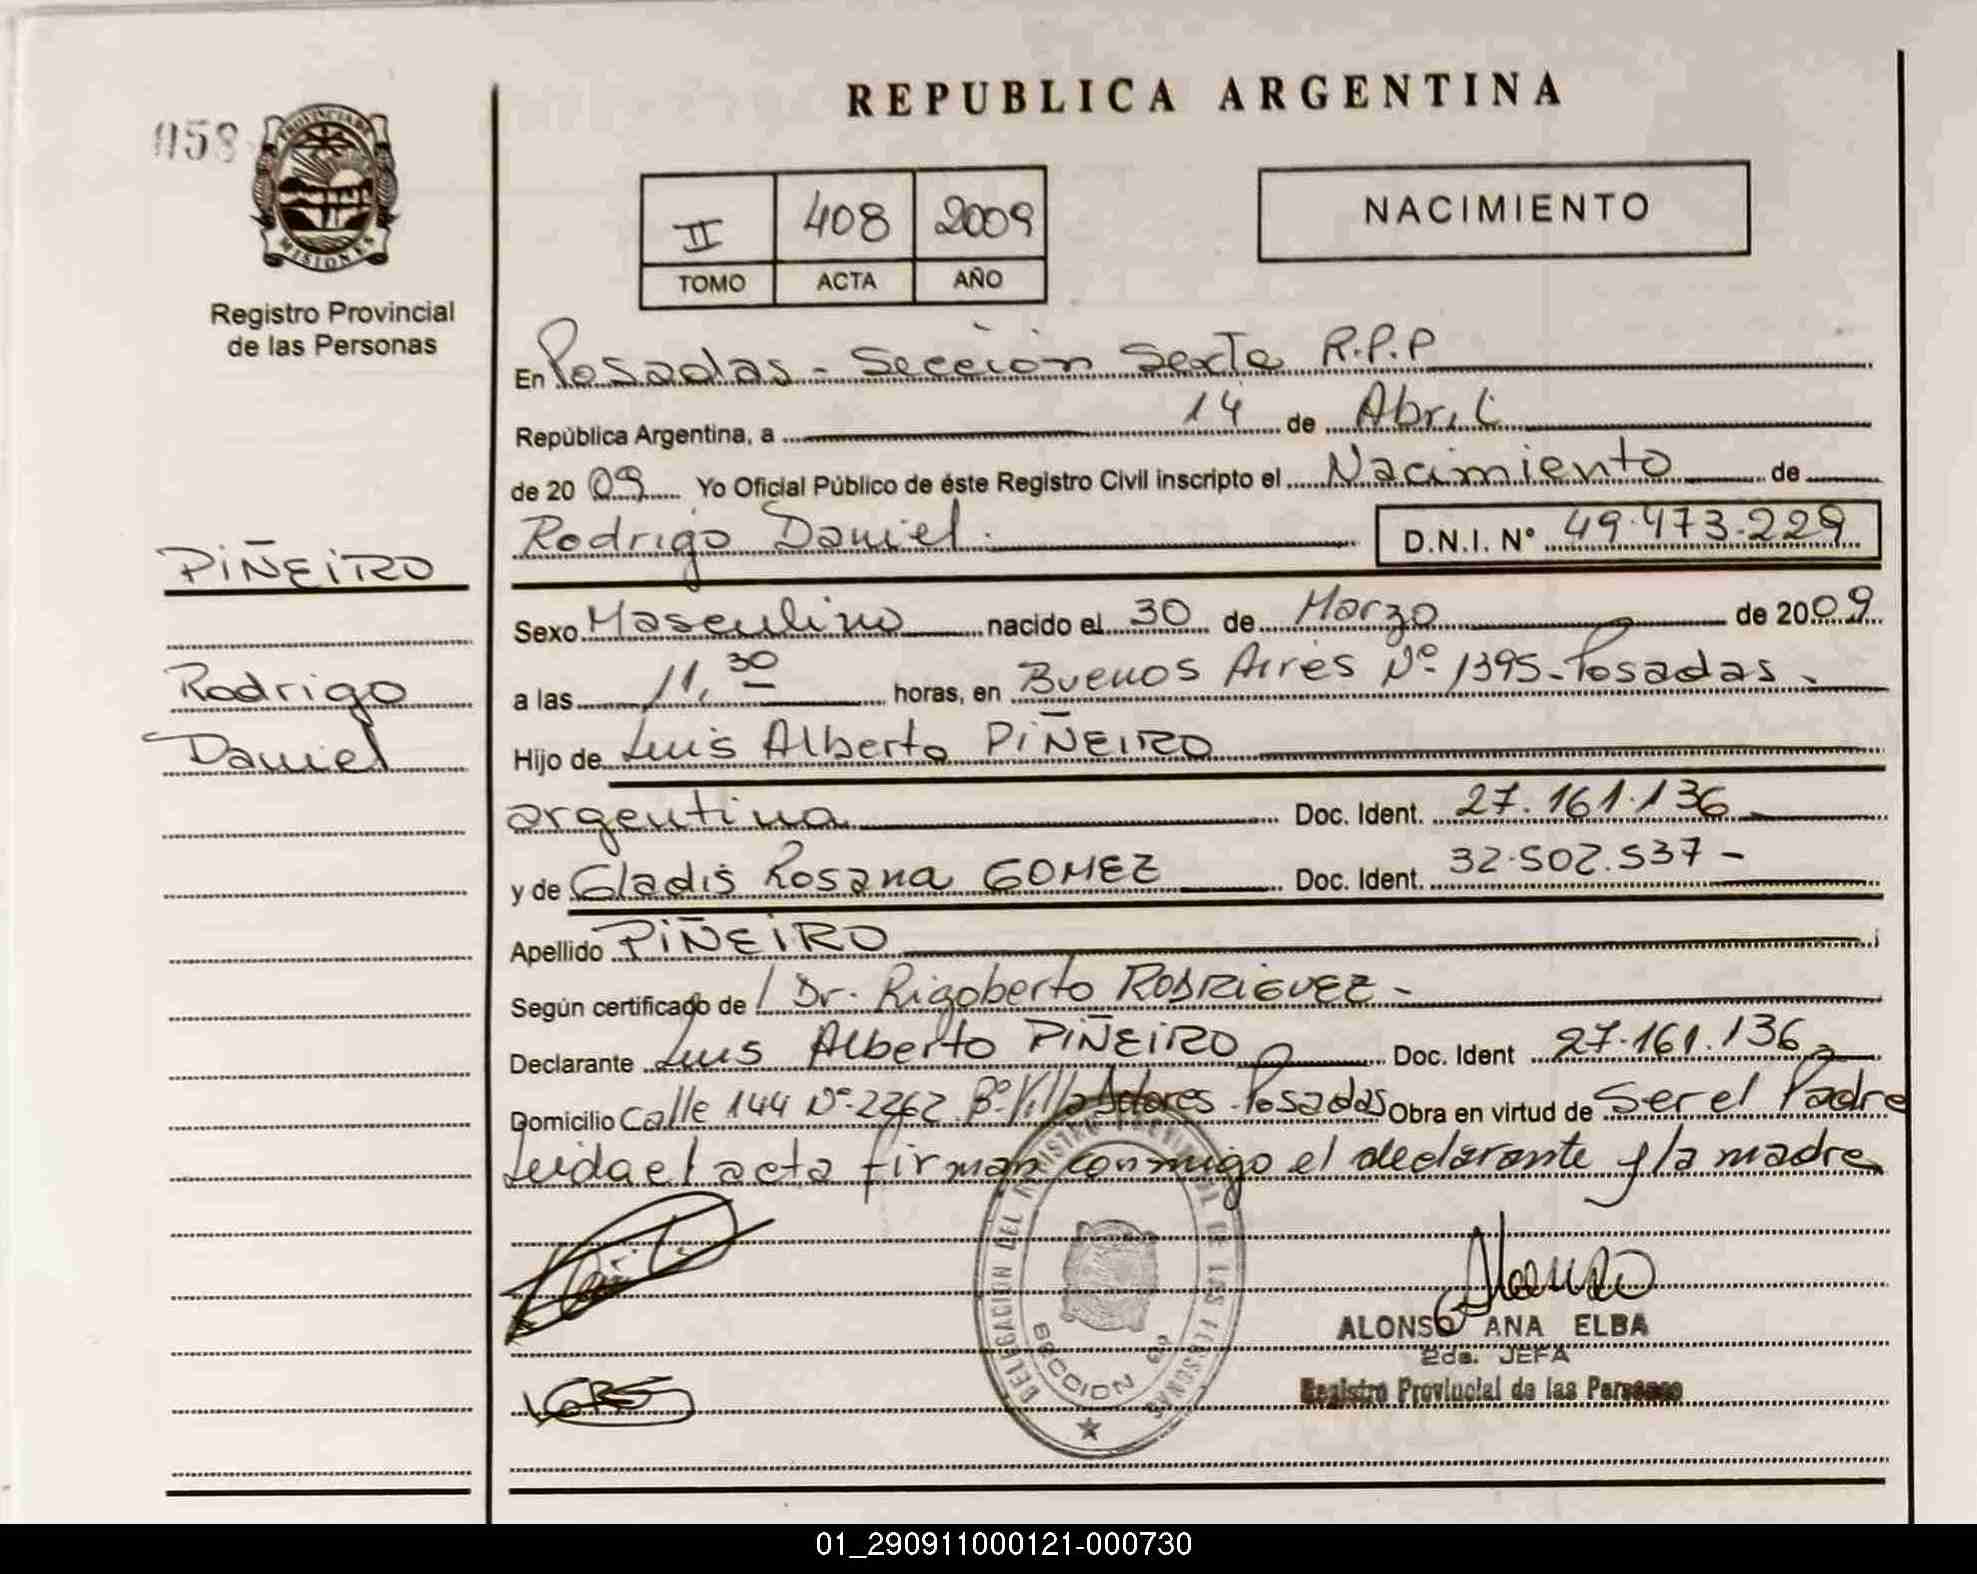 058
PROVINCIA DE
MISIONES
Registro Provincial
de las Personas
REPUBLICA ARGENTINA
II 408 2009
TOMO ACTA AÑO
NACIMIENTO
En Posadas - Sección Sexta R.P.P
República Argentina, a 14 de Abril
de 2009 Yo Oficial Público de éste Registro Civil inscripto el Nacimiento de
Rodrigo Daniel. D.N.I. N° 49.473.229
PIÑEIRO
Rodrigo
Daniel
Sexo Masculino nacido el 30 de Marzo de 2009
a las 11,30 horas, en Buenos Aires Nº 1395-Posadas-
Hijo de Luis Alberto PIÑEIRO
argentina Doc. Ident. 27.161.136
y de Gladis Rosana GOMEZ Doc. Ident. 32.502.537-
Apellido PIÑEIRO
Según certificado de Dr. Rigoberto RODRIGUEZ-
Declarante Luis Alberto PIÑEIRO Doc. Ident 27.161.136
Domicilio Calle 144 Nº-2262 Bº-Villa Posadas Obra en virtud de Ser el Padre
Leida el acta firman conmigo el declarante y la madre
DELEGACION DEL REGISTRO PROVINCIAL DE LAS PERSONAS
SECCION 6ta
ALONSO ANA ELBA
2da. JEFA
Registro Provincial de las Personas
01_290911000121-000730